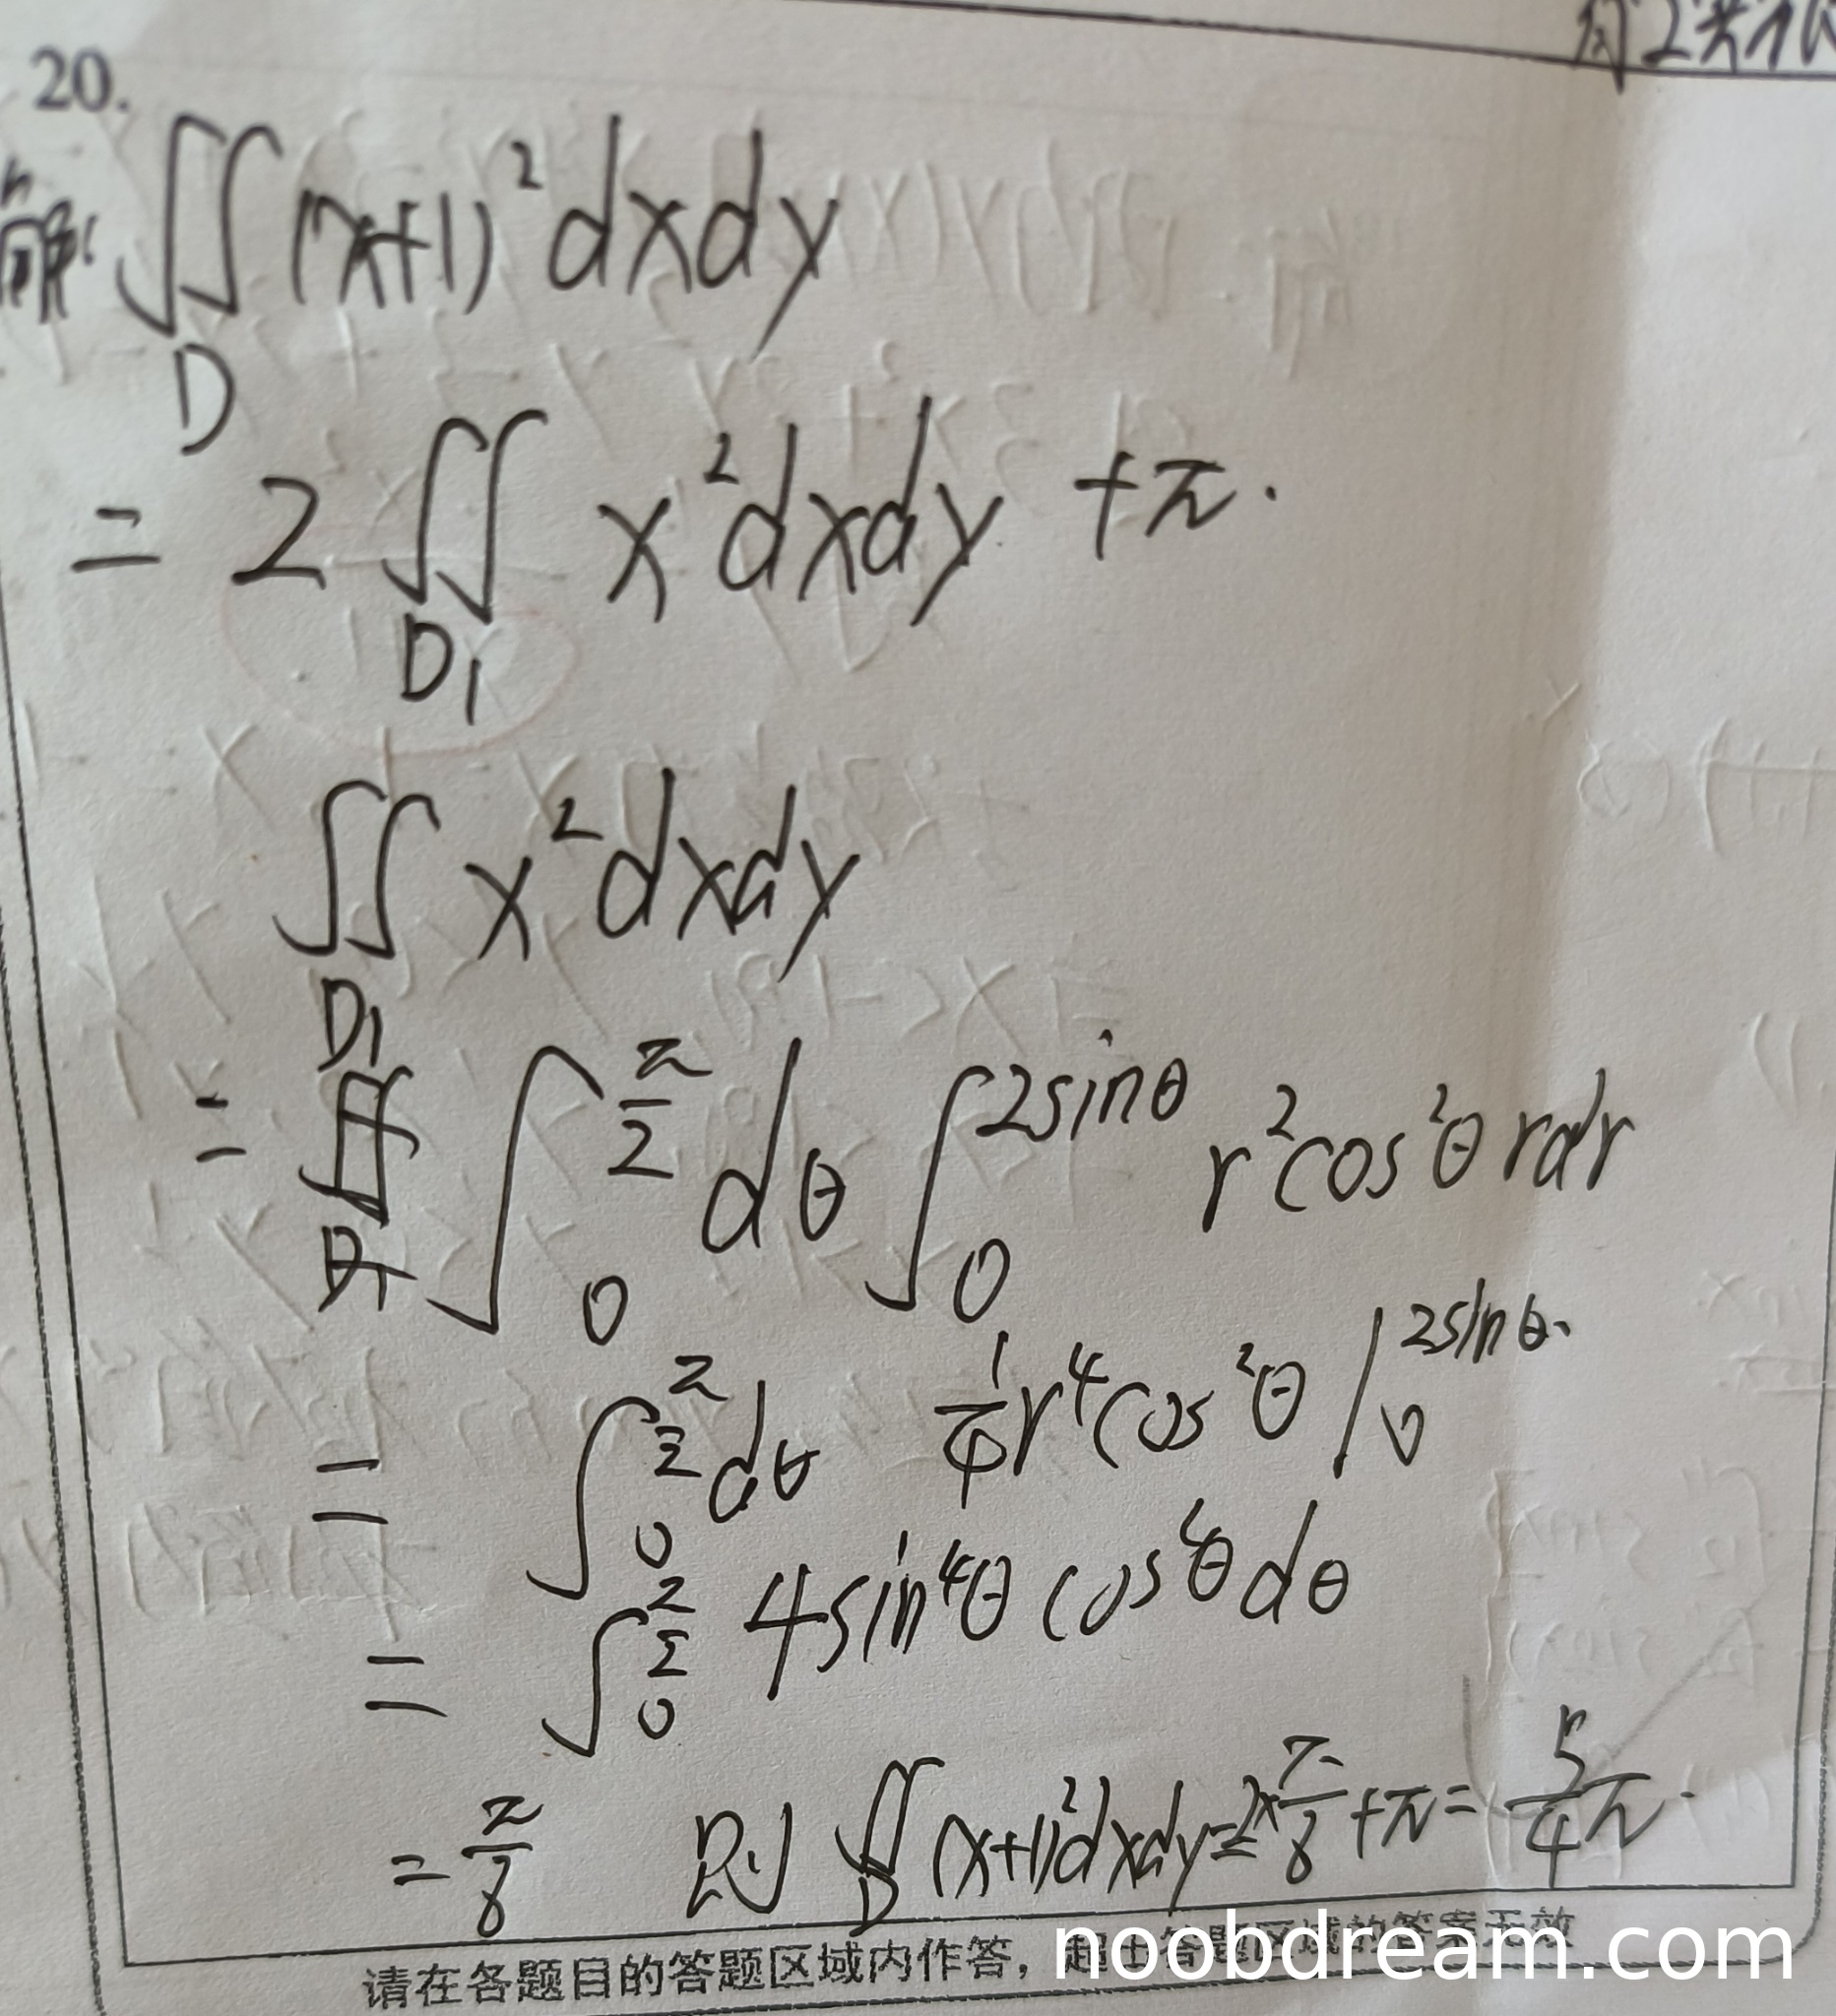 20.
解: ∬_D (x+1)² dxdy
= 2 ∬_{D₁} x² dxdy + π.
∬_{D₁} x² dxdy
= ∫_0^{π/2} dθ ∫_0^{2sinθ} r² cos²θ r dr
= ∫_0^{π/2} dθ 1/4 r⁴ cos²θ |_0^{2sinθ}
= ∫_0^{π/2} 4sin⁴θ cos²θ dθ
= π/8 则 ∬_D (x+1)² dxdy = 2×π/8 + π = 5/4 π.
请在各题目的答题区域内作答，超出答题区域的答案无效
noobdream.com